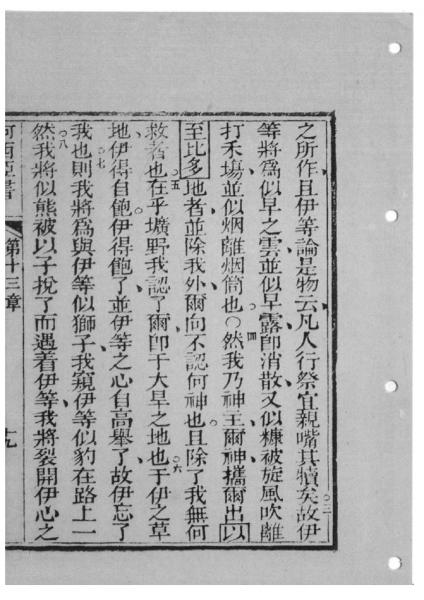 之所作且伊等論是物云凡人行祭宜親嘴其犢矣故伊
等將爲似早之雲並似早露卽消散又似糠被旋風吹離
打禾塲並似烟離烟筒也○然我乃神主爾神攜爾出以
至比多地者並除我外爾向不認何神也且除了我無何
救者也在乎壙野我認了爾卽于大旱之地也于伊之草
地伊得自飽伊得飽了並伊等之心自高舉了故伊忘了
我也則我將爲與伊等似獅子我窺伊等似豹在路上一
然我將似熊被以子挩了而遇着伊等我將裂開伊心之
何西亞書 第十三章 十九